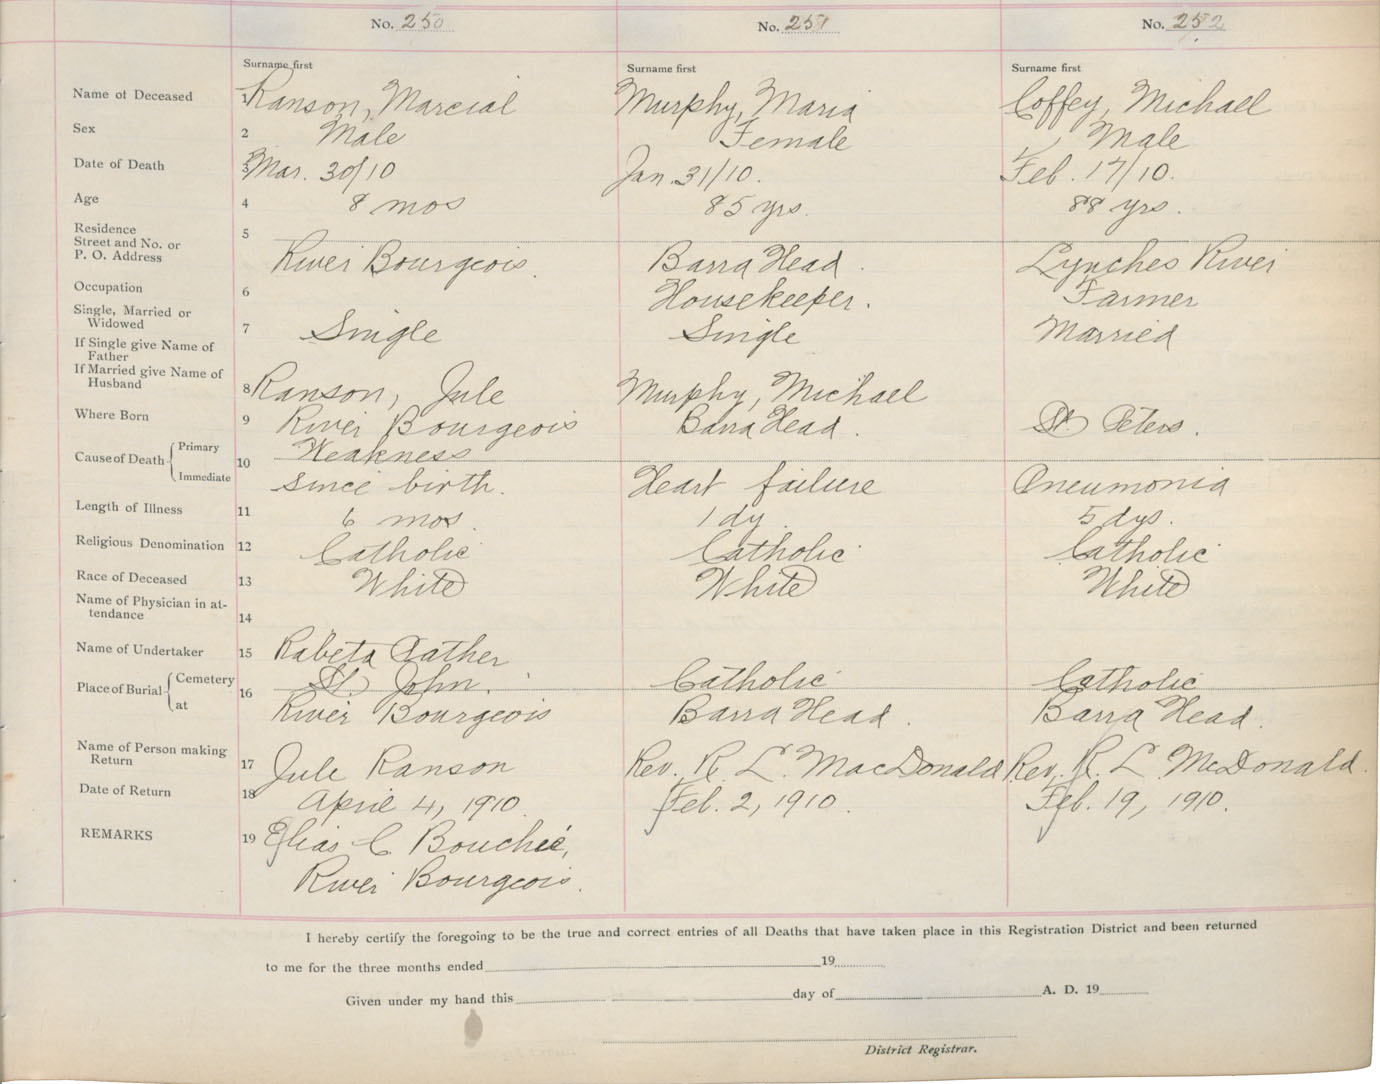 No. 250 No. 251 No. 252
Surname first Surname first Surname first
Name of Deceased 1 Ranson, Marcial Murphy, Maria Coffey, Michael
Sex 2 Male Female Male
Date of Death 3 Mar. 30/10 Jan. 31/10. Feb. 17/10.
Age 4 8 mos 85 yrs. 88 yrs.
Residence
Street and No. or 5
P. O. Address River Bourgeois. Barra Head. Lynches River
Occupation 6 Housekeeper. Farmer
Single, Married or
Widowed 7 Single Single Married
If Single give Name of
Father
If Married give Name of
Husband 8 Ranson, Jule Murphy, Michael
Where Born 9 River Bourgeois Barra Head. St. Peters.
Cause of Death Primary 10 Weakness
Immediate since birth. Heart failure Pneumonia
Length of Illness 11 6 mos. 1 dy. 5 dys.
Religious Denomination 12 Catholic Catholic Catholic
Race of Deceased 13 White White White
Name of Physician in at-
tendance 14
Name of Undertaker 15 Rabeta
Place of Burial Cemetery 16 St. John. Catholic Catholic
at River Bourgeois Barra Head. Barra Head.
Name of Person making
Return 17 Jule Ranson Rev. R. L. MacDonald Rev. R. L. McDonald.
Date of Return 18 April 4, 1910 Feb. 2, 1910. Feb. 19, 1910.
REMARKS 19 Elias C Bouchie,
River Bourgeois.
I hereby certify the foregoing to be the true and correct entries of all Deaths that have taken place in this Registration District and been returned
to me for the three months ended 19
Given under my hand this day of A. D. 19
District Registrar.